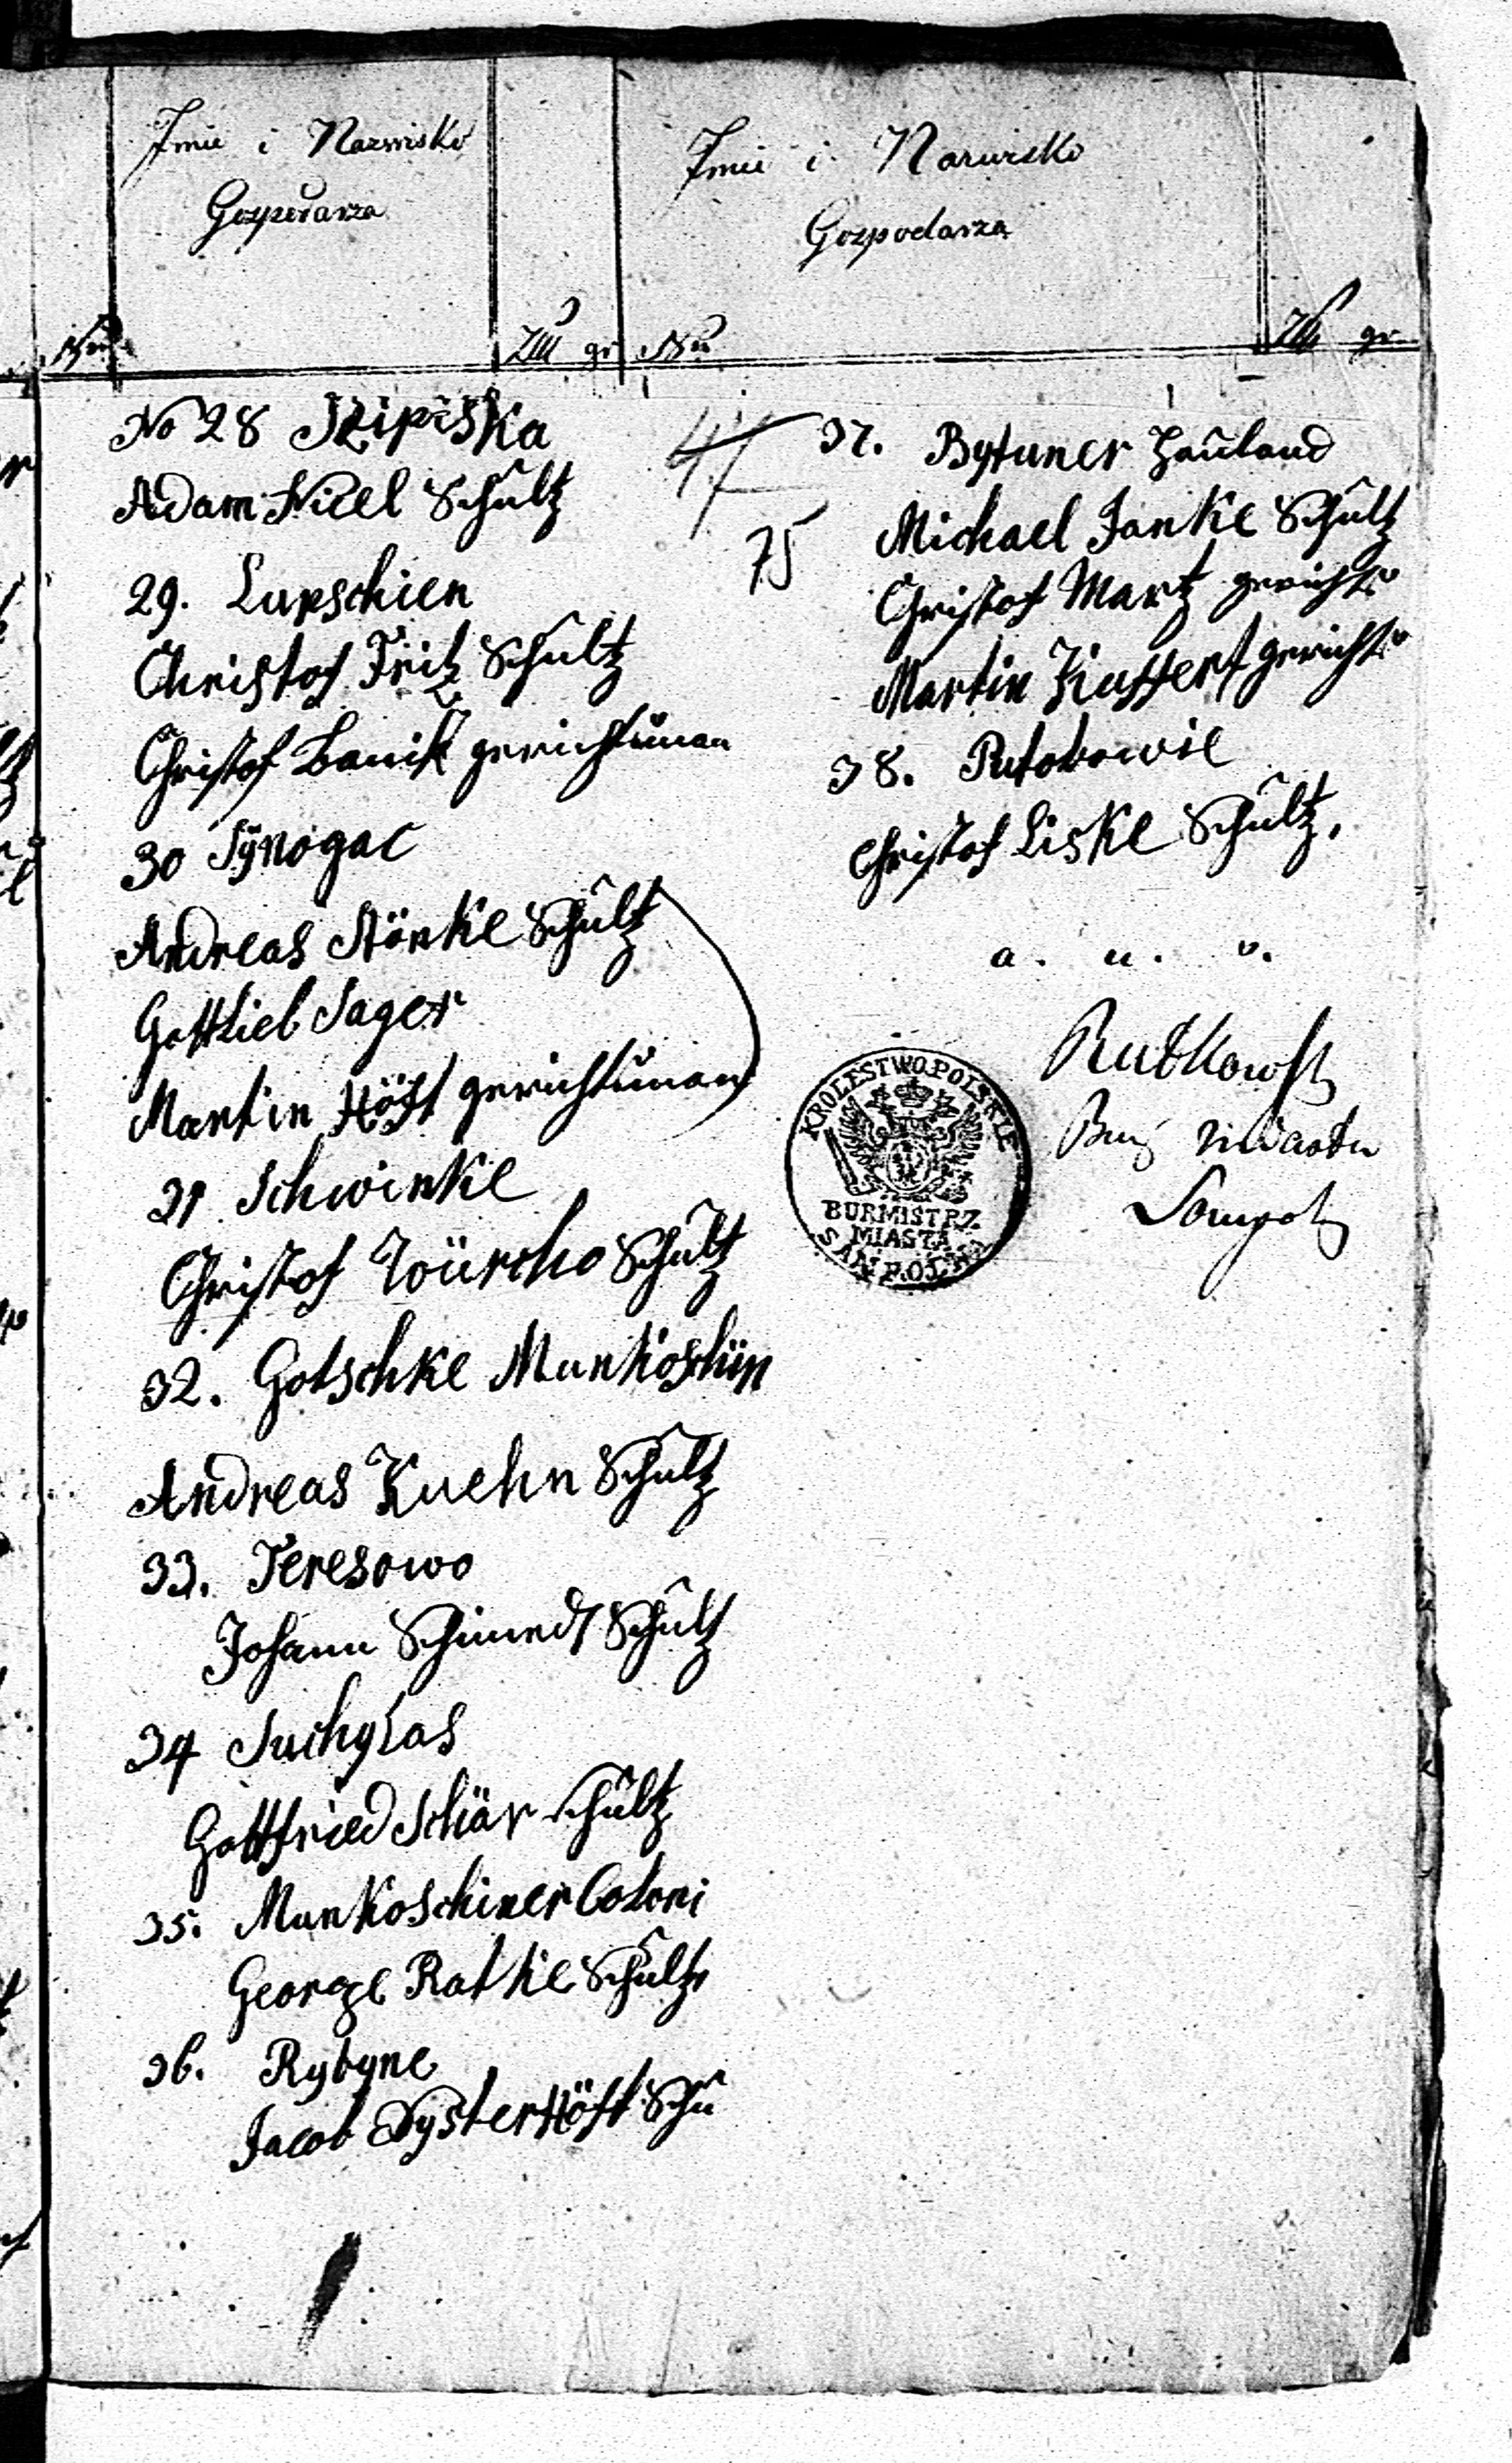 Imie i Nazwisko
Gospodarza
Nru
Złł gr
No 28 Szipiska
Adam Nicel Schultz
29. Lupschien
Christof Fritz Schultz
Christof Banik gerichtsman
30 Synogac
Andreas Nönke Schultz
Gottlieb Sager
Martin Höft gerichtsman
31 Schwinke
Christof Schultz
32. Gotschke Munkoschin
Andreas Kuehn Schultz
33. Teresowo
Johann Schmedt Schultz
34 Suchylas
Gottfried Schär Schultz
35. Munkoschiner Coloni
George Ratke Schultz
36. Rybyne
Jacob DysterHöft Schu
Imie i Nazwisko
Gospodarza
Nru
Złł gr
47
75
37. Bytuner Hauland
Michael Janke Schultz
Christof Martz gerichts
Martin gerichts
38. Rutobowie
Christof Liske Schultz.
a. u. v.
Rutkowski
Bur miasta
Sompol
KROLESTWO POLSKIE
BURMISTRZ
MIASTA
SAMPOLNA